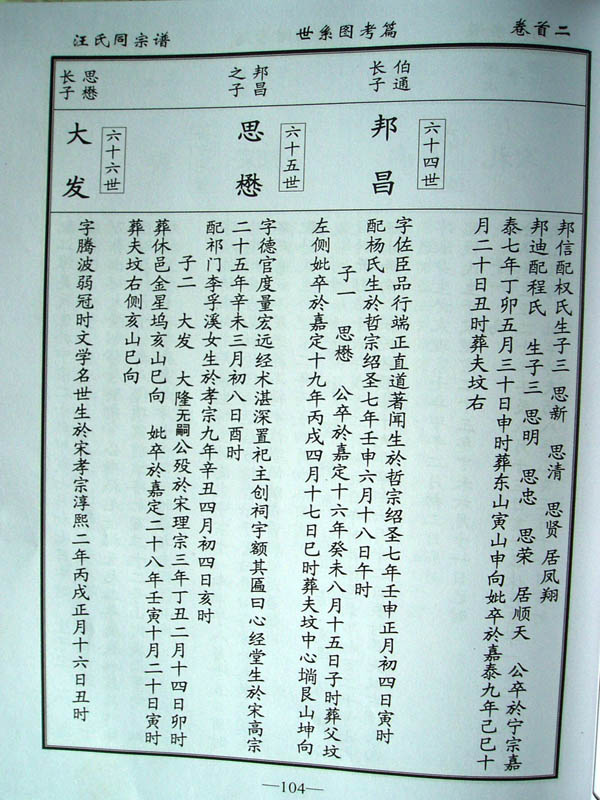 汪氏同宗谱
世系图考篇
卷首二
伯通
长子
六十四世
邦昌
邦昌
之子
六十五世
思懋
思懋
长子
六十六世
大发
邦信配权氏生子三 思新 思清 思贤居凤翔
邦迪配程氏 生子三 思明 思忠 思荣 居顺天 公卒於宁宗嘉
泰七年丁卯五月三十日申时葬东山寅山申向妣卒於嘉泰九年己巳十
月二十日丑时葬夫坟右
字佐臣品行端正直道著闻生於哲宗绍圣七年壬申正月初四日寅时
配杨氏生於哲宗绍圣七年壬申六月十八日午时
子一 思懋 公卒於嘉定十六年癸未八月十五日子时葬父坟
左侧妣卒於嘉定十九年丙戌四月十七日巳时葬夫坟中心埫艮山坤向
字德官度量宏远经术湛深置祀主创祠宇额其匾曰心经堂生於宋高宗
二十五年辛未三月初八日酉时
配祁门李孚溪女生於孝宗九年辛丑四月初四日亥时
子二 大发 大隆无嗣公殁於宋理宗三年丁丑二月十四日卯时
葬休邑金星坞亥山巳向 妣卒於嘉定二十八年壬寅十月二十日寅时
葬夫坟右侧亥山巳向
字腾波弱冠时文学名世生於宋孝宗淳熙二年丙戌正月十六日丑时
—104—